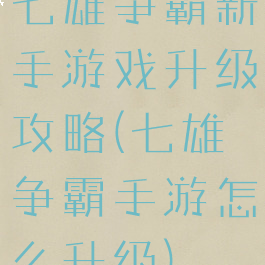 七雄争霸新
手游戏升级
攻略(七雄
争霸手游怎
么升级)